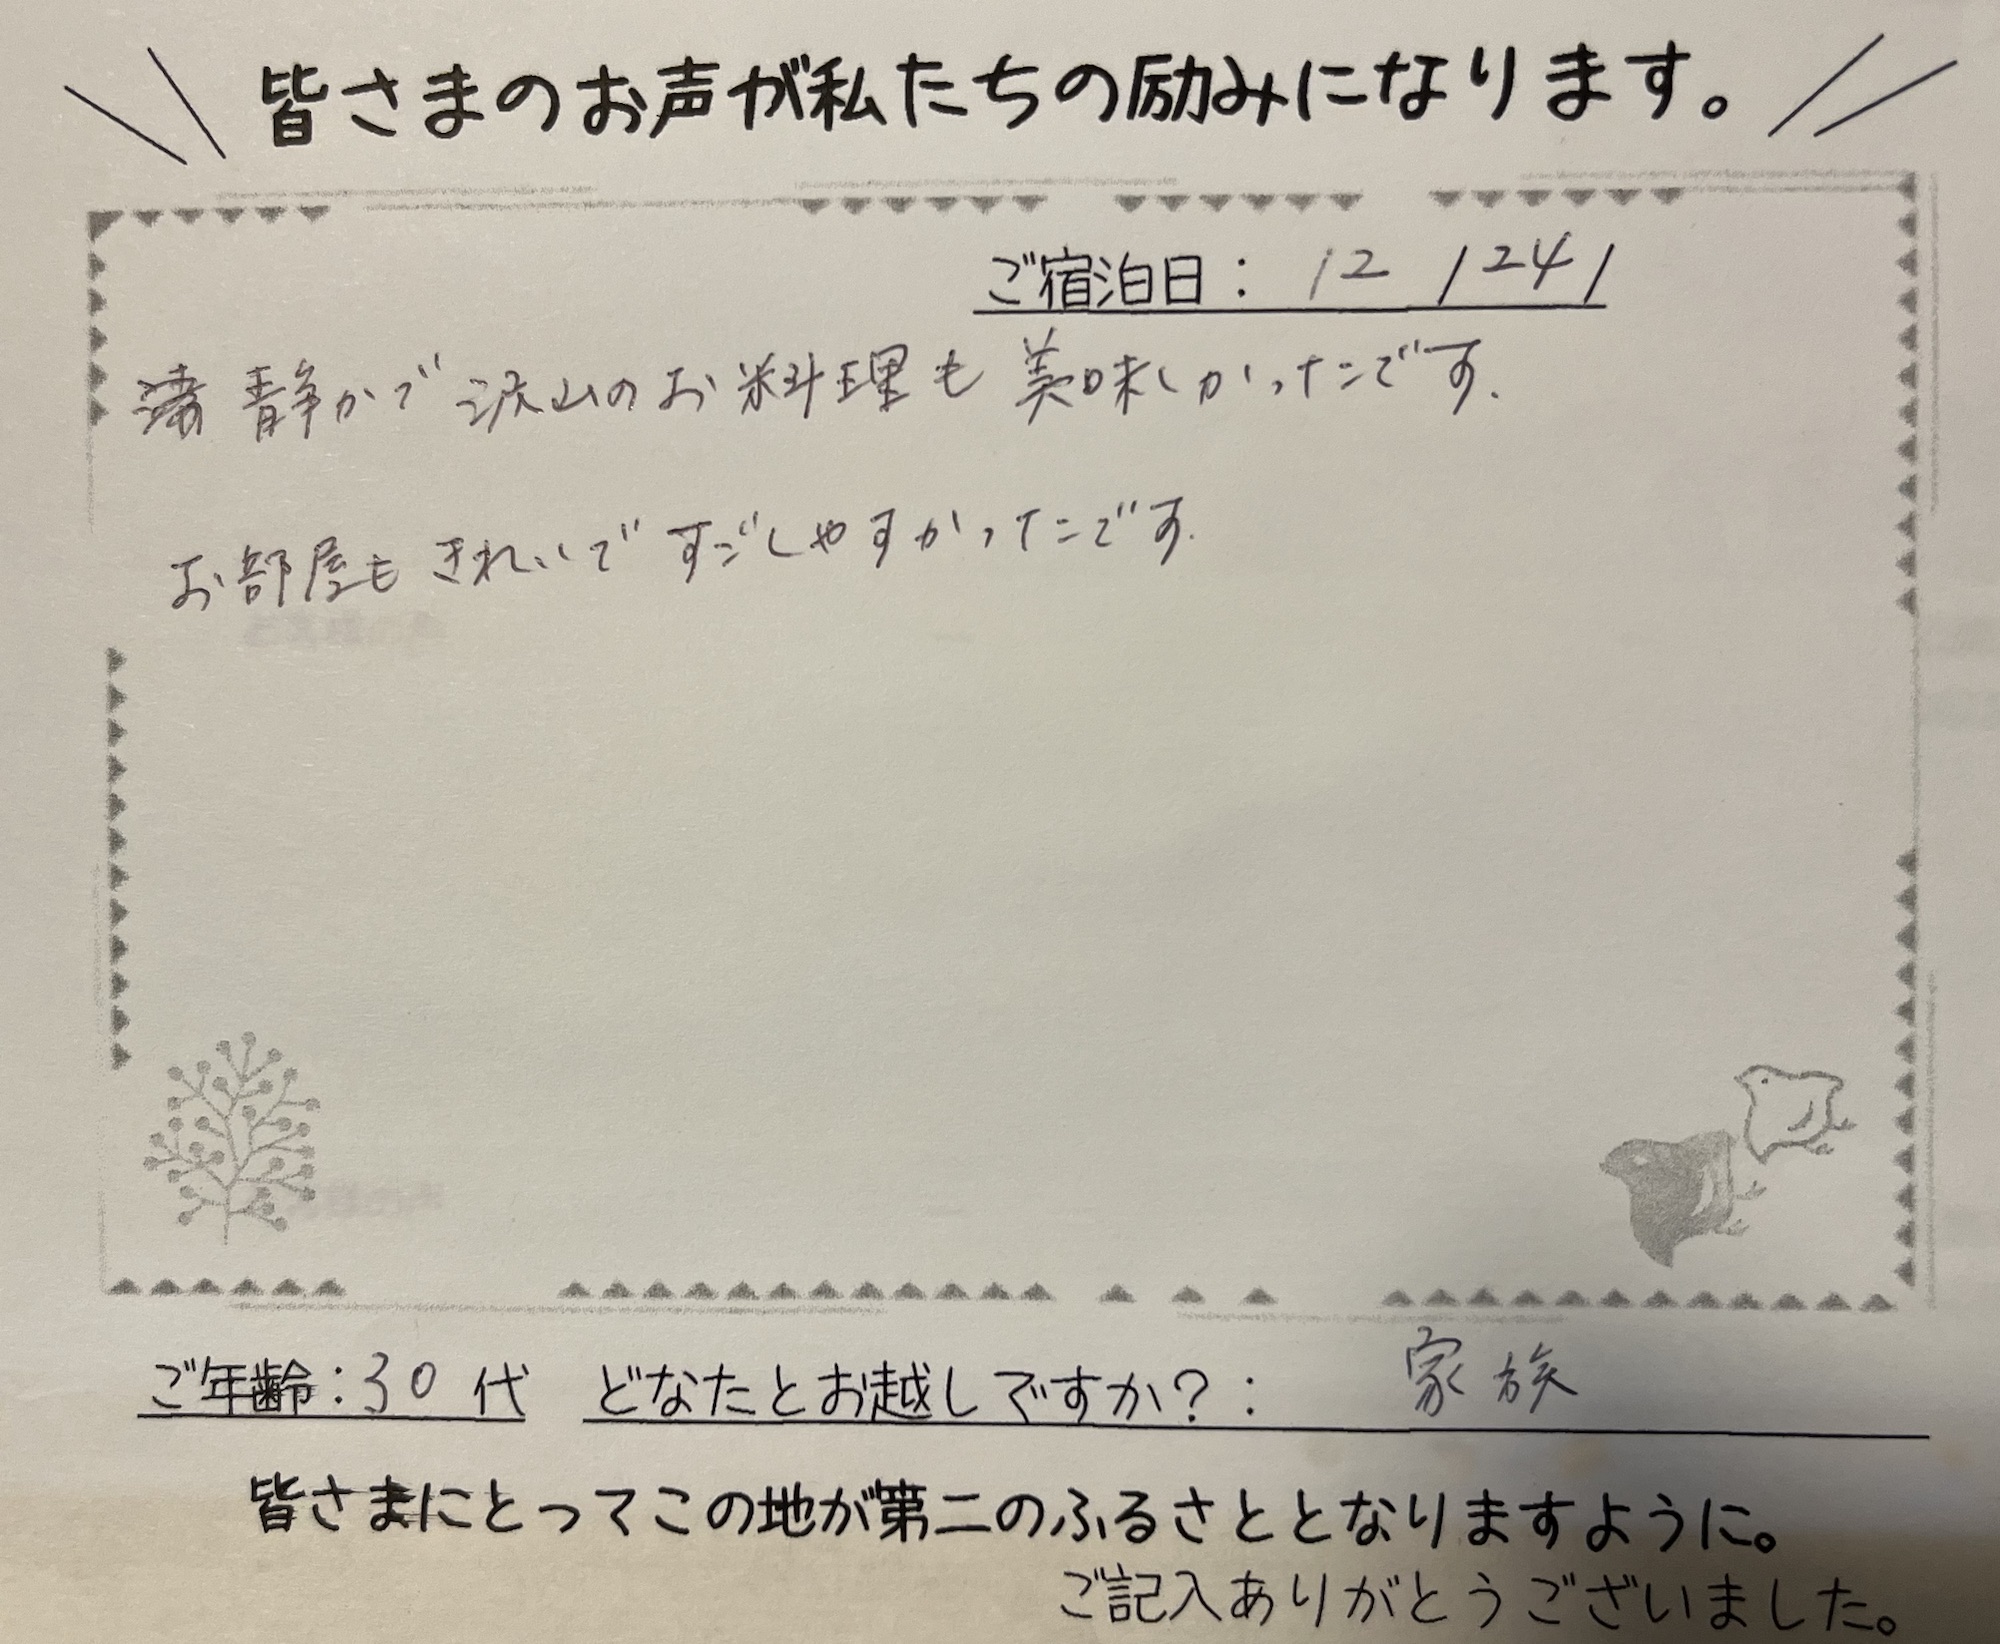 皆さまのお声が私たちの励みになります。
ご宿泊日： 12 /24 /
静かで 沢山のお料理も 美味しかったです.
お部屋も きれいで すごしやすかったです.
ご年齢：30 代 どなたとお越しですか？： 家族
皆さまにとってこの地が第二のふるさととなりますように。
ご記入ありがとうございました。